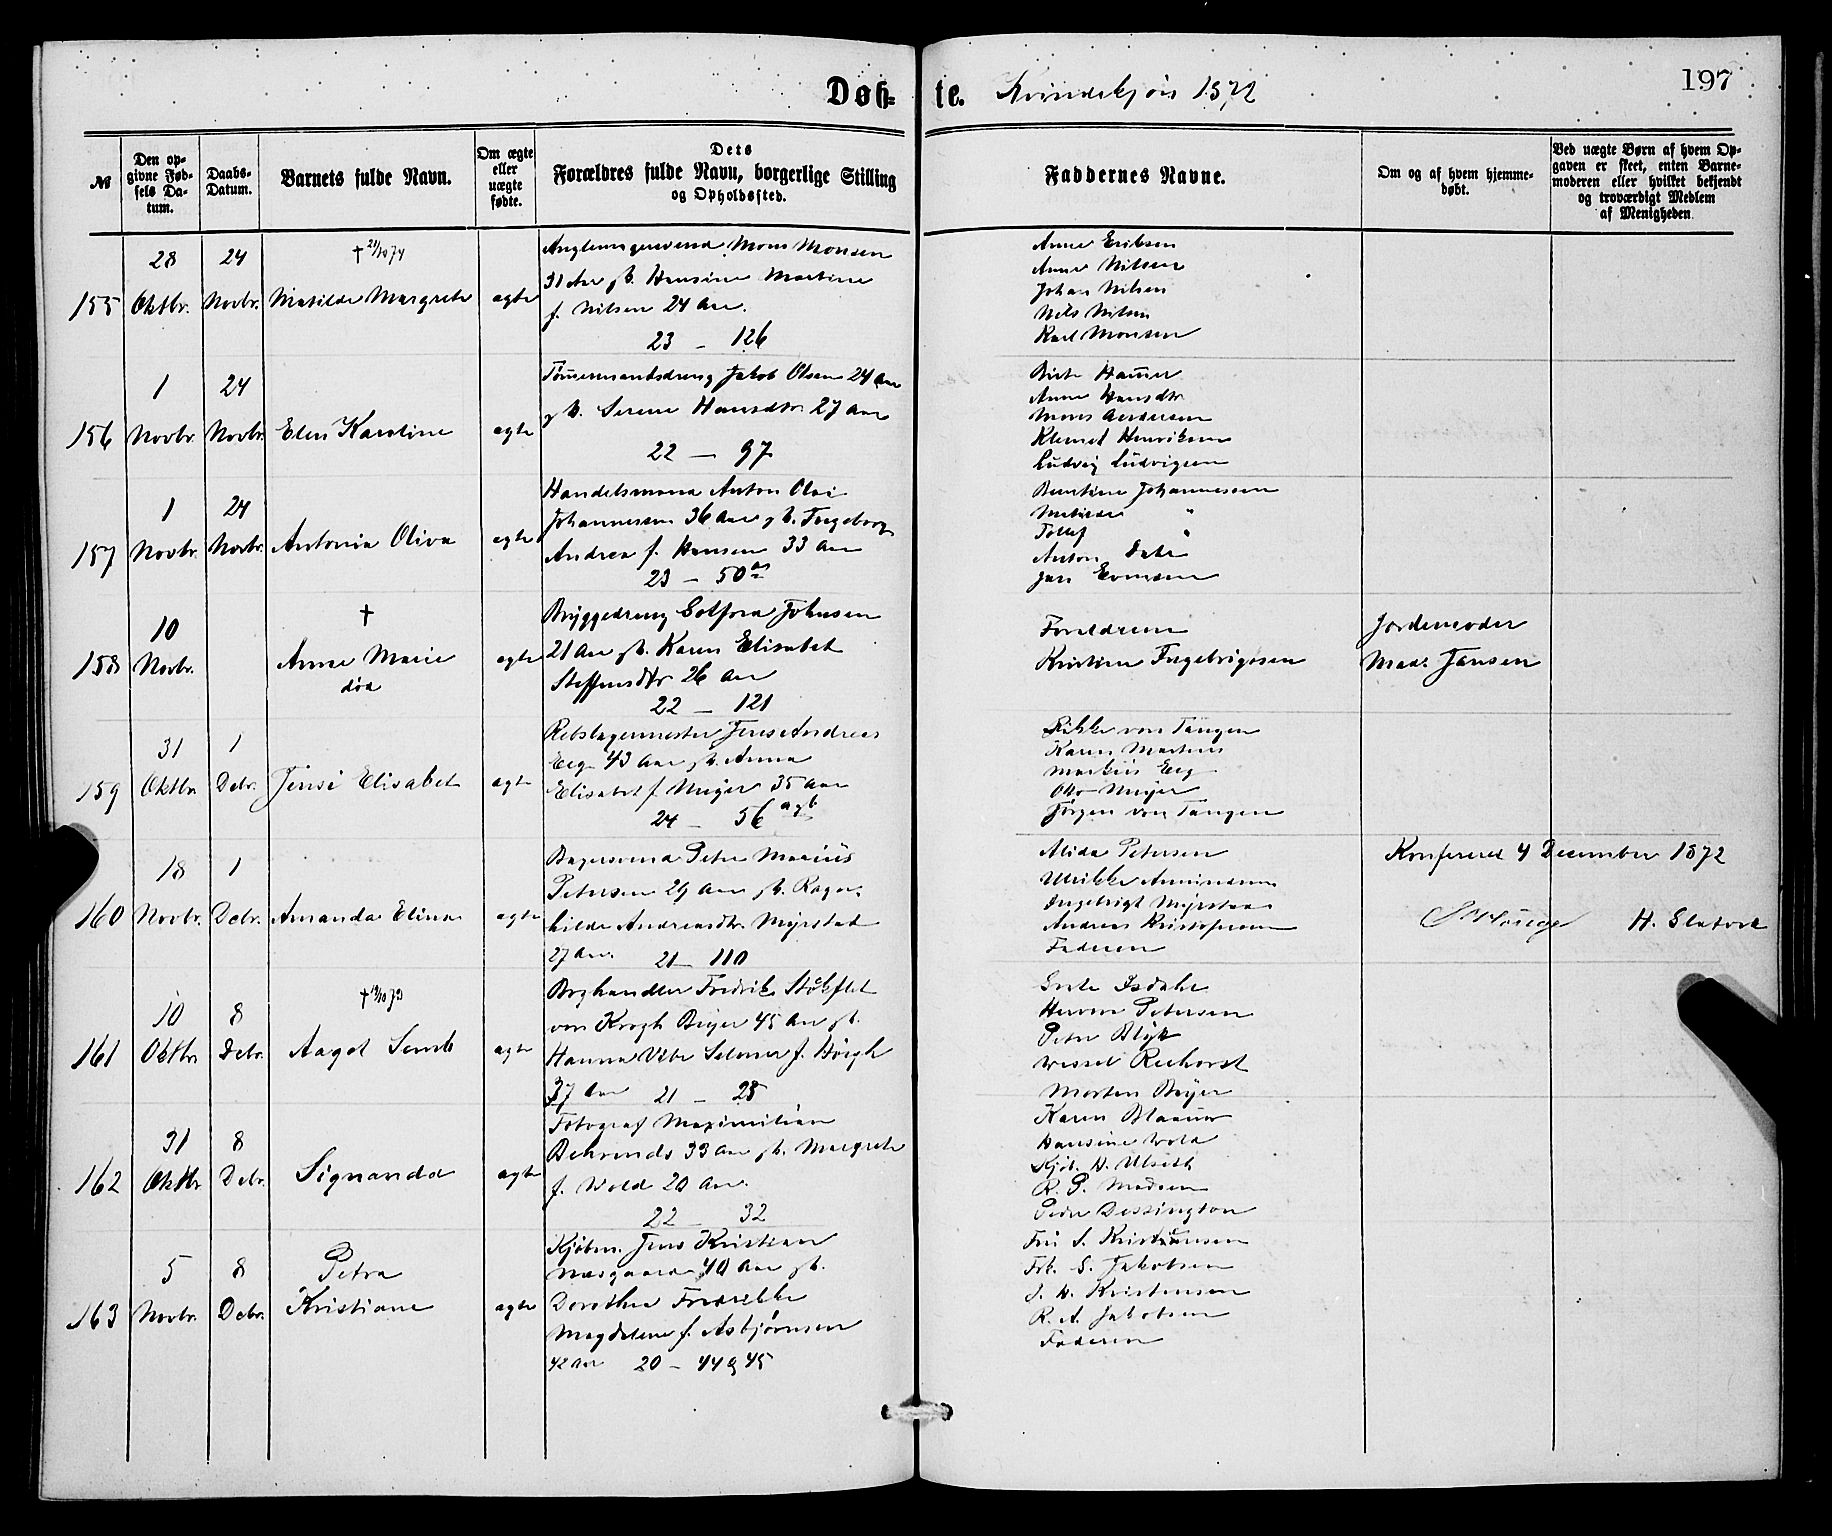 Døb- te. Kvindekjön 1872
197
№
Den op-
givne Fød-
sels Da-
tum.
Daabs-
Datum.
Barnets fulde Navn.
Om ægte
eller
uægte
fødte.
Dets
Forældres fulde Navn, borgerlige Stilling
og Opholdssted.
Faddernes Navne.
Om og af hvem hjemme-
døbt.
Ved uægte Børn af hvem Op-
gaven er skeet, enten Barne-
moderen eller hvilket bekjendt
og troværdigt Medlem
af Menigheden.
155
28
Oktbr.
24
Novbr.
† 21/10 74
Matilde Margrete
ægte
Mons Monsen
31 Aar g/b. Hansine Martine
f. Nilsen 24 Aar.
23 — 126
Anne Eriksen
Anne Nilsen
Johan Nilsen
Nils Nilsen
Karl Monsen
156
1
Novbr.
24
Novbr.
Elen Karoline
ægte
Tömmermandsdreng Jakob Olsen 24 Aar
g/b. Serine Hansdtr 27 Aar
22 — 97
Birte Hammer
Anne Hansdtr
Mons Andersen
Klemet Henriksen
Ludvig Ludvigsen
157
1
Novbr.
24
Novbr.
Antonia Oliva
ægte
Handelsmand Anton Olai
Johannesen 36 Aar g/b. Ingeborg
Andrea f. Hansen 33 Aar
23 — 50 a
Berntine Johannessen
Matilde "
Tollef "
Anton
Jan Evensen
158
10
Novbr.
†
Anne Marie
död
ægte
Bryggedreng Johnsen
21 Aar g/b. Karen Elisabet
Steffensdtr 26 Aar
22 — 121
Forældrene
Kristine Ingebrigtsen
Jordemoder
Mad. Jansen
159
31
Oktbr.
1
Debr.
Jensi Elisabet
ægte
Rebslagermester Jens Andreas
Eeg 43 Aar g/b. Anna
Elisabet f. Meyer 35 Aar
24 — 56 a g b
Rikke von Tangen
Karen Martens
Markus Eeg
Otto Meyer
Jörgen von Tangen
160
18
Novbr.
1
Debr.
Amanda Elina
ægte
Bagersvend Peter Marius
Petersen 29 Aar g/b. Ragn-
hilda Andreasdtr. Myrstad
27 Aar. 21 — 110
Alida Petersen
Ulrikke Amundsen
Ingebrigt Myrstad
Andreas Kristofersen
Faderen
Konfereret 4 December 1872
H. Slatved
161
10
Oktbr
8
Debr.
† 19/10 73
Aagot Semb
ægte
Boghandler Fredrik Stokflet
von Krogh Beyer 45 Aar g/b.
Hanna Vibe Selmer f. Høegh
37 Aar 21 — 28
Grete Isdahl
Petersen
Peter Blyt
Wessel Reehorst
Morten Beyer
162
31
Oktbr
8
Debr.
Signanda
ægte
Fotograf Maximilian
Behrends 33 Aar g/b. Margrete
f. Wold 20 Aar.
22 — 32
Karen Blaauw
Hansine Wold
Kjöb. H. Ulseth
R. P. Madsen
Peder Dessington
163
5
Novbr.
8
Debr.
Petra
Kristiane
ægte
Kjöbm. Jens Kristian
Næsgaard 40 Aar g/b.
Dorothea Fredrikke
Magdalene f. Asbjørnsen
42 Aar 20 — 44 & 45
Fru S. Kristensen
Frk. S. Jakobsen
J. H. Kristensen
R. A. Jakobsen
Faderen